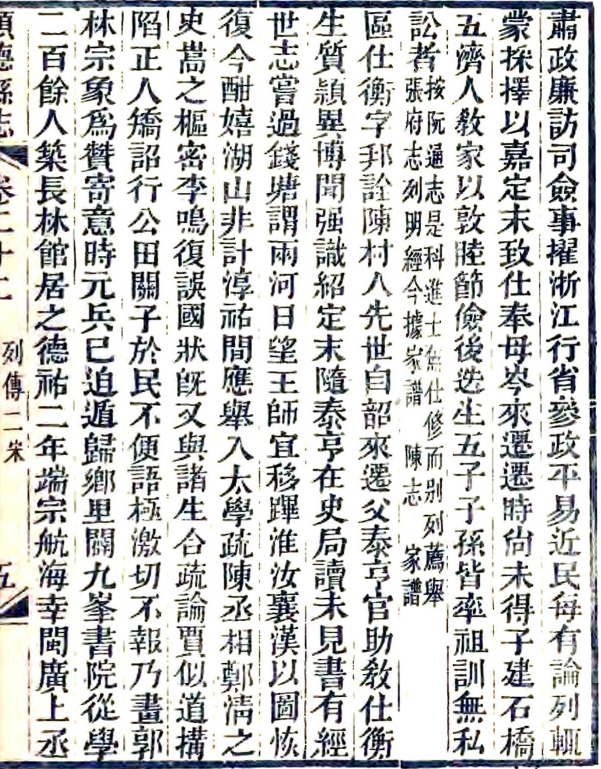 肅政廉訪司僉事擢浙江行省參政平易近民每有論列輒
蒙採擇以嘉定末致仕奉母岑來遷遷時尙未得子建石橋
五濟人敎家以敦睦節儉後迭生五子子孫皆率祖訓無私
訟者
按阮通志是科進士無仕修而別列薦舉
張府志列明經今據家譜 陳志 家譜
區仕衡字邦詮陳村人先世自韶來遷父泰亨官助敎仕衡
生質頴異博聞强識紹定末隨泰亨在史局讀未見書有經
世志嘗過錢塘謂兩河日望王師宜移蹕淮汝襄漢以圖恢
復今酣嬉湖山非計淳祐間應舉入太學疏陳丞相鄭淸之
史嵩之樞密李鳴復誤國狀旣又與諸生合疏論賈似道搆
陷正人矯詔行公田關子於民不便語極激切不報乃畫郭
林宗象爲贊寄意時元兵已迫遁歸鄕里闢九峯書院從學
二百餘人築長林館居之德祐二年端宗航海幸閩廣上丞
順德縣志 卷二十二 列傳二宋 五